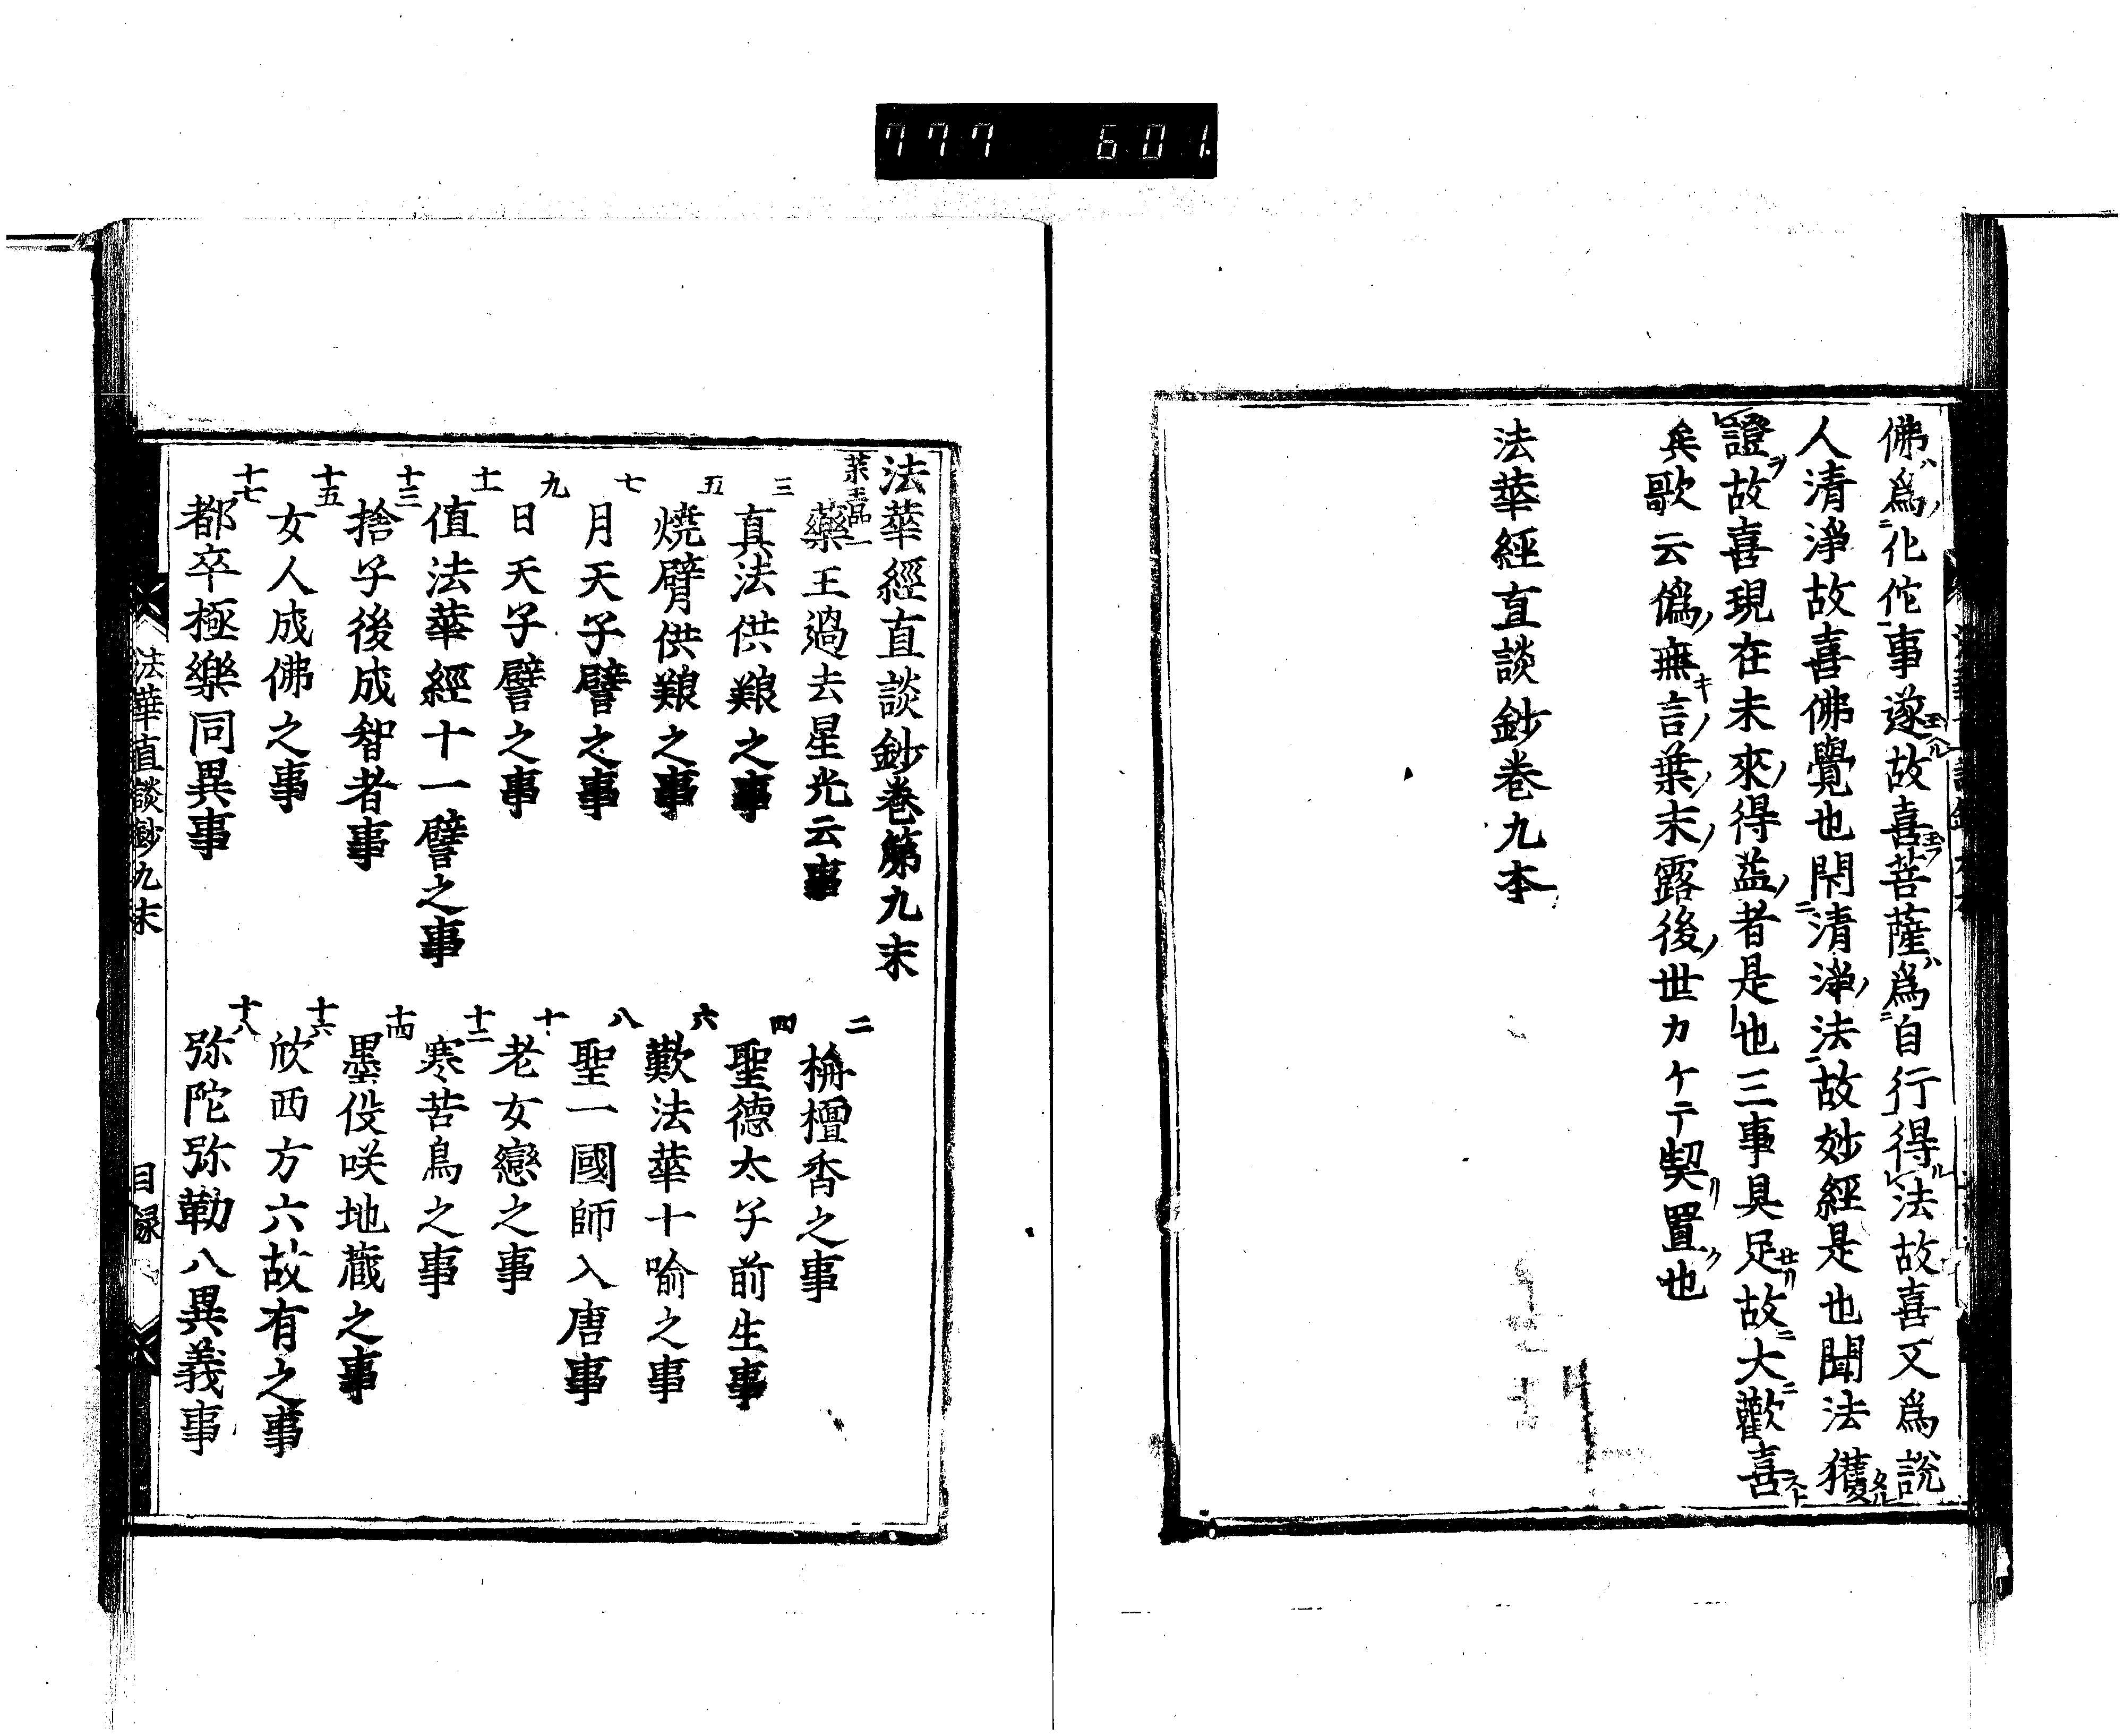 777 601.
佛ハ爲ノ二化佗一事遂玉ヘル故喜玉フ菩薩ハ爲二自行得ルレ法故喜又爲說
人清淨故喜佛覺也閑二清淨ノ法一故妙經是也聞法獲タル
レ證ヲ故喜現在未來ノ得益ノ者是也三事具足セリ故二大二歡喜スト
矣歌云僞ノ無キ言ノ葉ノ末ノ露後ノ世カケテ契リ置ク也
法華經直談鈔卷九本
法華經直談鈔卷第九末
藥王品一 藥王過去星光云事
二 栴檀香之事
三 真法供養之事
四 聖德太子前生事
五 燒臂供養之事
六 歎法華十喻之事
七 月天子譬之事
八 聖一國師入唐事
九 日天子譬之事
十 老女戀之事
十一 值法華經十一譬之事
十二 寒苦鳥之事
十三 捨子後成智者事
十四 墨役咲地藏之事
十五 女人成佛之事
十六 欣西方六故有之事
十七 都卒極樂同異事
十八 弥陀弥勒八異義事
法華直談鈔九末 目録